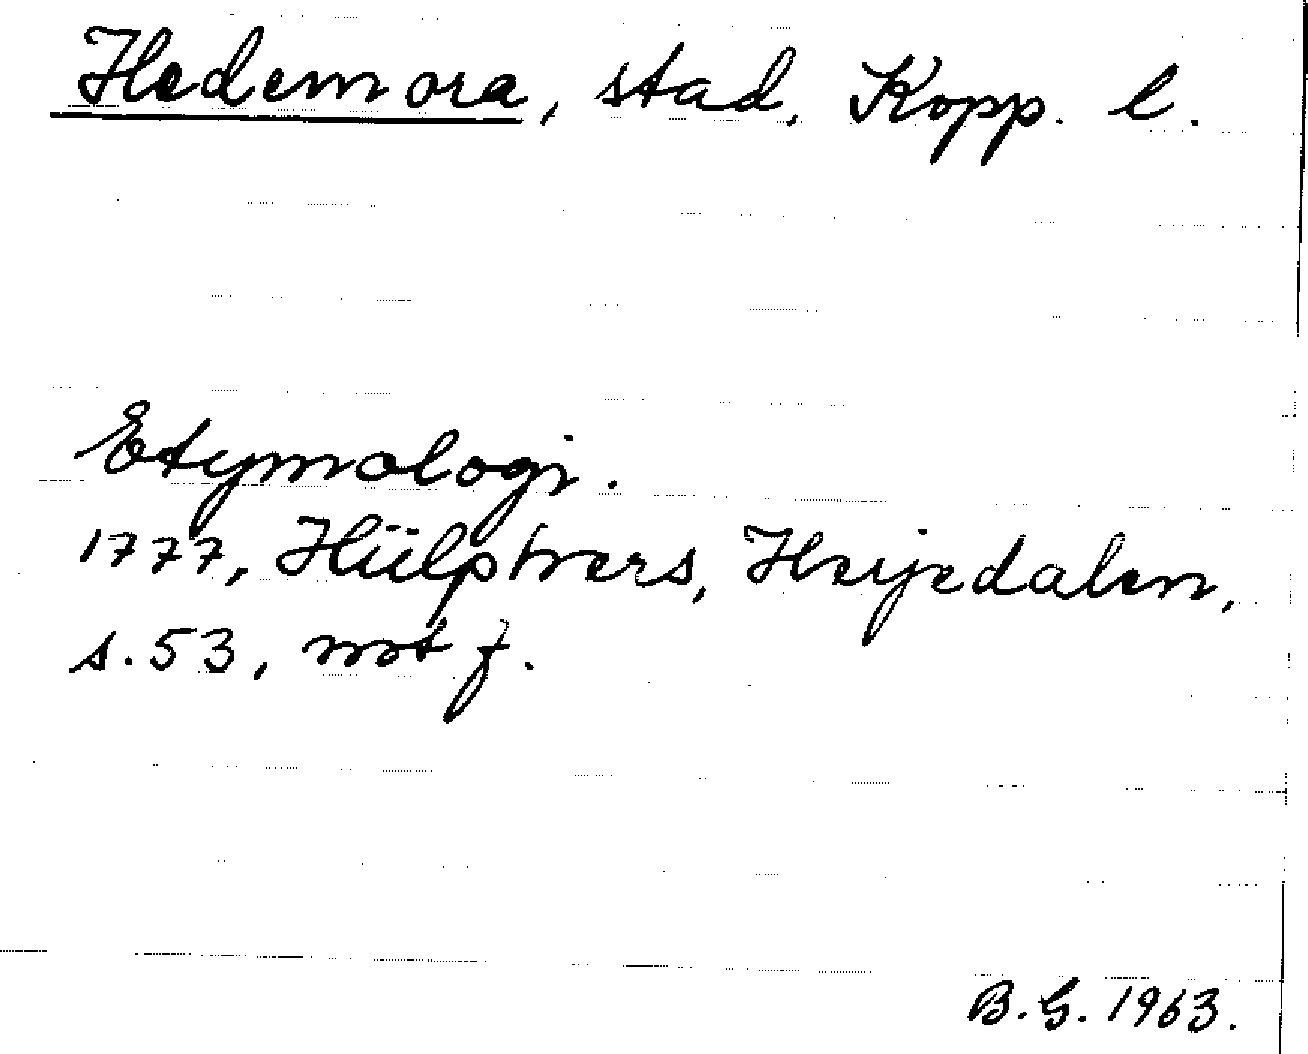 Hedemora, stad, Kopp. l.
Etymologi.
1777, Hülphers, Herjedalen,
s. 53, not f.
B. G. 1963.